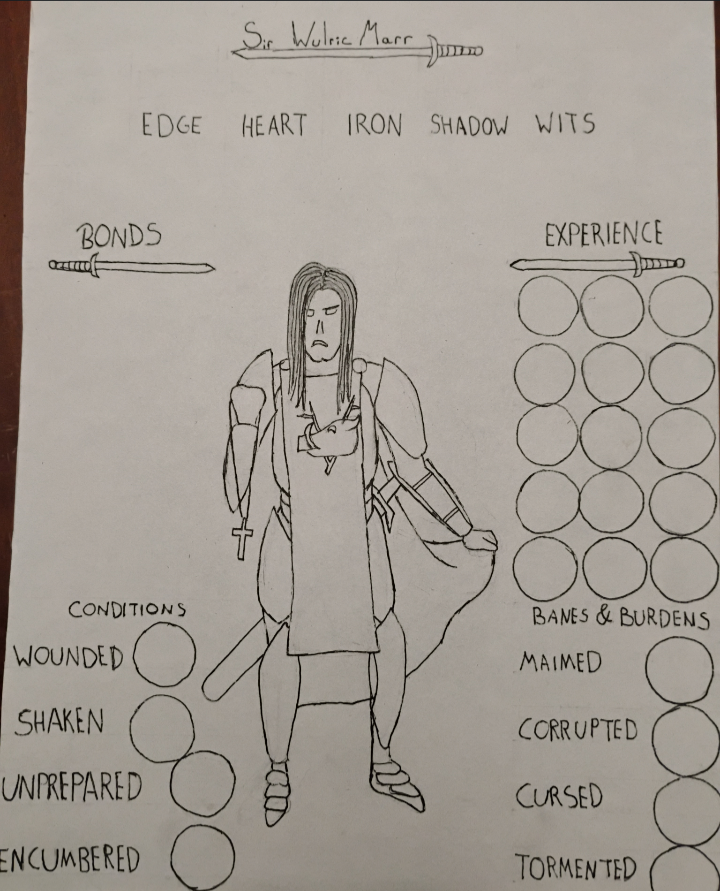 Sir Wulric Marr
EDGE HEART IRON SHADOW WITS
BONDS
EXPERIENCE
CONDITIONS
WOUNDED
SHAKEN
UNPREPARED
ENCUMBERED
BANES & BURDENS
MAIMED
CORRUPTED
CURSED
TORMENTED